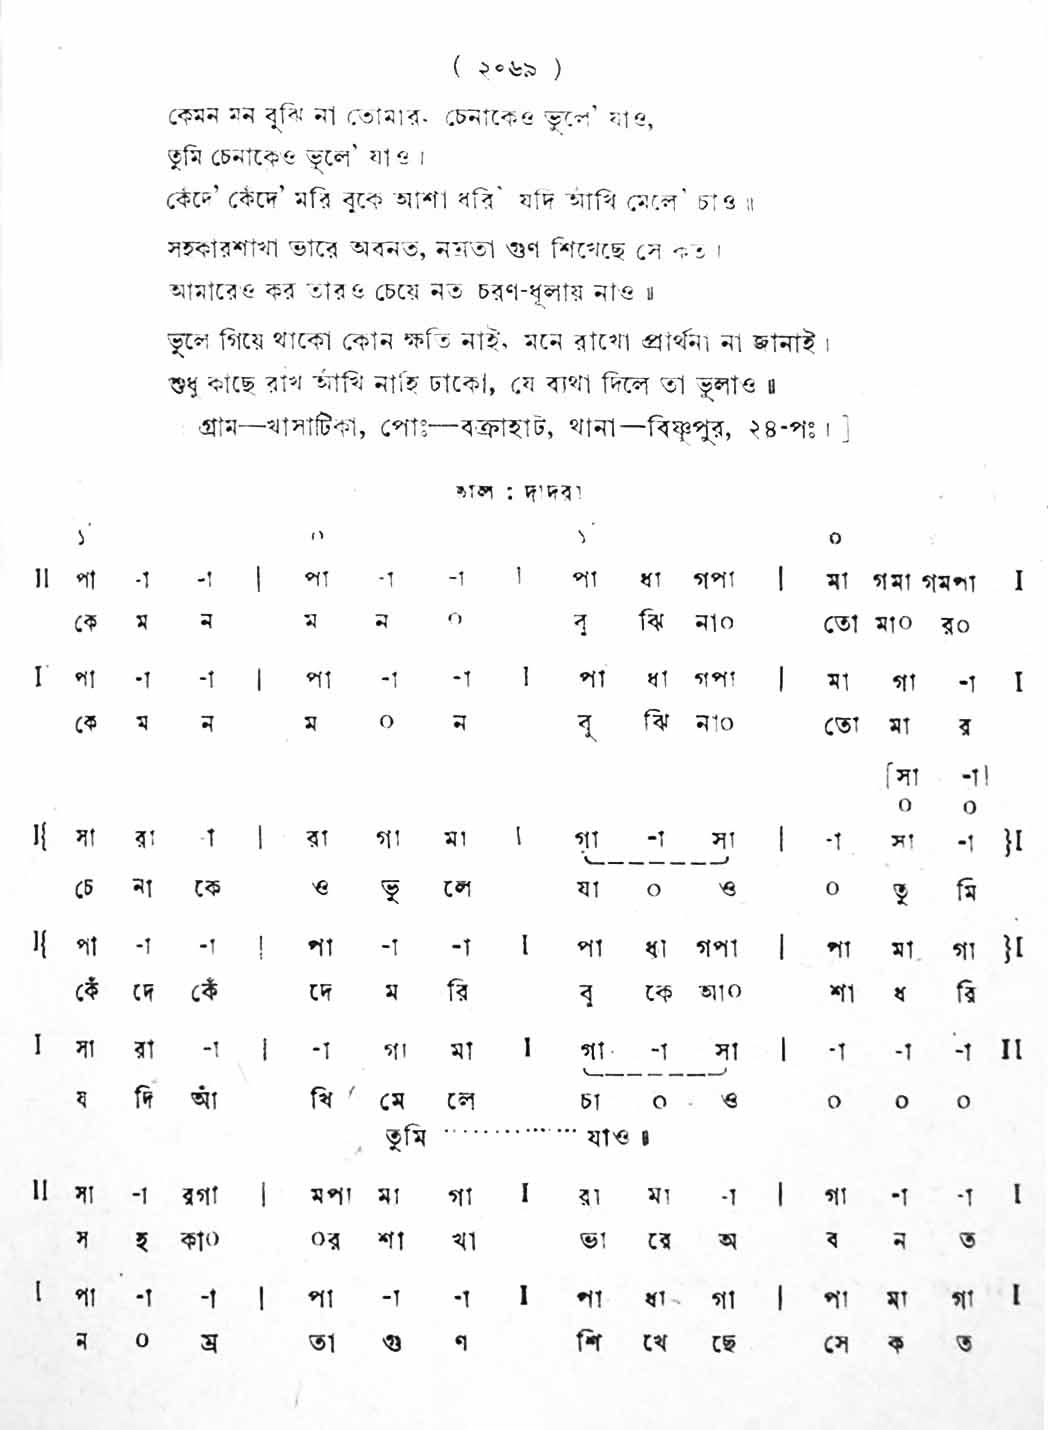 ( ২০৬৯ )
কেমন মন বুঝি না তোমার, চেনাকেও ভুলে' যাও,
তুমি চেনাকেও ভুলে' যাও ।
কেঁদে' কেঁদে' মরি বুকে আশা ধরি' যদি আঁখি মেলে' চাও ॥
সহকারশাখা ভারে অবনত, নম্রতা গুণ শিখেছে সে কত ।
আমারেও কর তারও চেয়ে নত চরণ-ধূলায় নাও ॥
ভুলে গিয়ে থাকো কোন ক্ষতি নাই, মনে রাখো প্রার্থনা না জানাই ।
শুধু কাছে রাখ আঁখি নাহি ঢাকো, যে ব্যথা দিলে তা ভুলাও ॥
গ্রাম—খাসাটিকা, পোঃ—বক্রাহাট, থানা—বিষ্ণুপুর, ২৪-পঃ । ]
তাল : দাদরা
১´ ০ ১´ ০
II পা -া -া | পা -া -া I পা ধা গপা | মা গমা গমপা I
কে ম ন ম ন ০ বু ঝি না০ তো মা০ র০
I পা -া -া | পা -া -া I পা ধা গপা | মা গা -া I
কে ম ন ম ০ ন বু ঝি না০ তো মা র
[সা -া]
০ ০
I{ সা রা -া | রা গা মা I গা -া সা | -া সা -া }I
চে না কে ও ভু লে যা ০ ও ০ তু মি
I{ পা -া -া | পা -া -া I পা ধা গপা | পা মা গা }I
কেঁ দে কেঁ দে ম রি বু কে আ০ শা ধ রি
I সা রা -া | -া গা মা I গা -া সা | -া -া -া II
য দি আঁ খি মে লে চা ০ ও ০ ০ ০
তুমি ·············· যাও ॥
II সা -া রগা | মপা মা গা I রা মা -া | গা -া -া I
স হ কা০ ০র শা খা ভা রে অ ব ন ত
I পা -া -া | পা -া -া I পা ধা গা | পা মা গা I
ন ০ ম্র তা গু ণ শি খে ছে সে ক ত